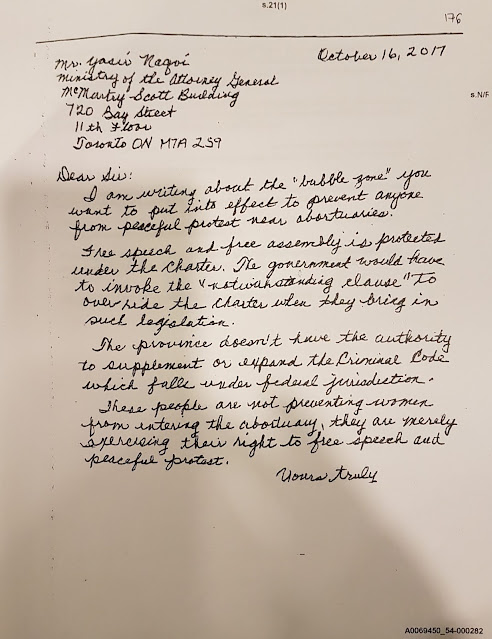 s.21(1)
176
October 16, 2017
Mr. Yasir Naqvi
Ministry of the Attorney General
McMurtry-Scott Building
720 Bay Street
11th Floor
Toronto ON M7A 2S9
s.N/R
Dear Sir:
I am writing about the "bubble zone" you
want to put into effect to prevent anyone
from peaceful protest near abortuaries.
Free speech and free assembly is protected
under the Charter. The government would have
to invoke the "notwithstanding clause" to
over ride the Charter when they bring in
such legislation.
The province doesn't have the authority
to supplement or expand the Criminal Code
which falls under federal jurisdiction.
These people are not preventing women
from entering the abortuary, they are merely
exercising their right to free speech and
peaceful protest.
Yours truly
A0069450_54-000282